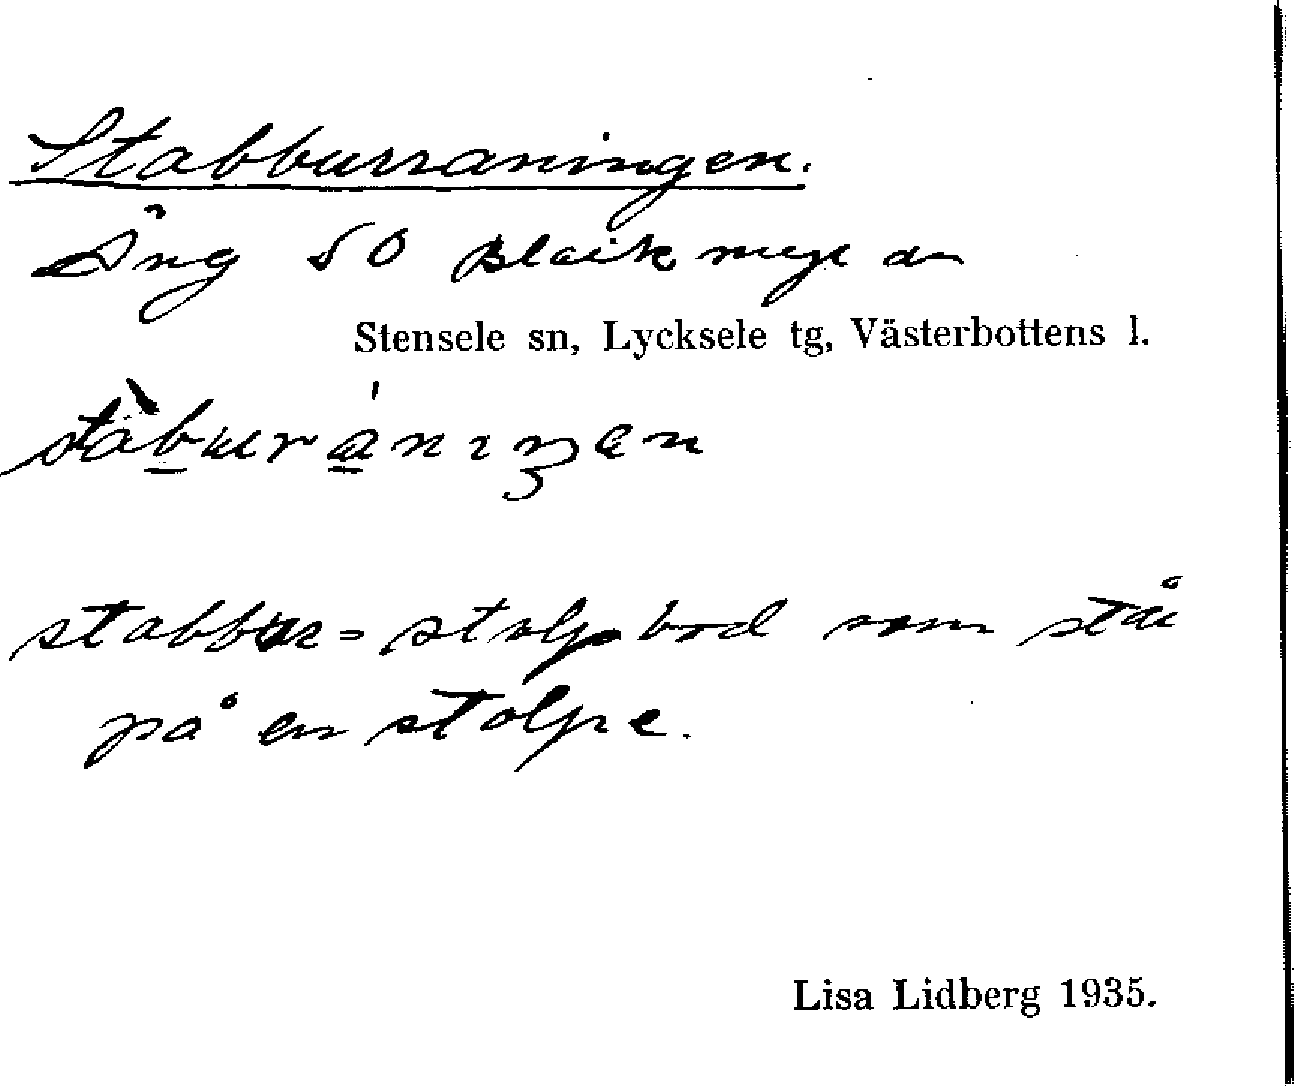 Stabburraningen.
Äng SO Blaikmyran
Stensele sn, Lycksele tg, Västerbottens l.
stàburániŋen
stabbur = stolpbod som stå
på en stolpe.
Lisa Lidberg 1935.